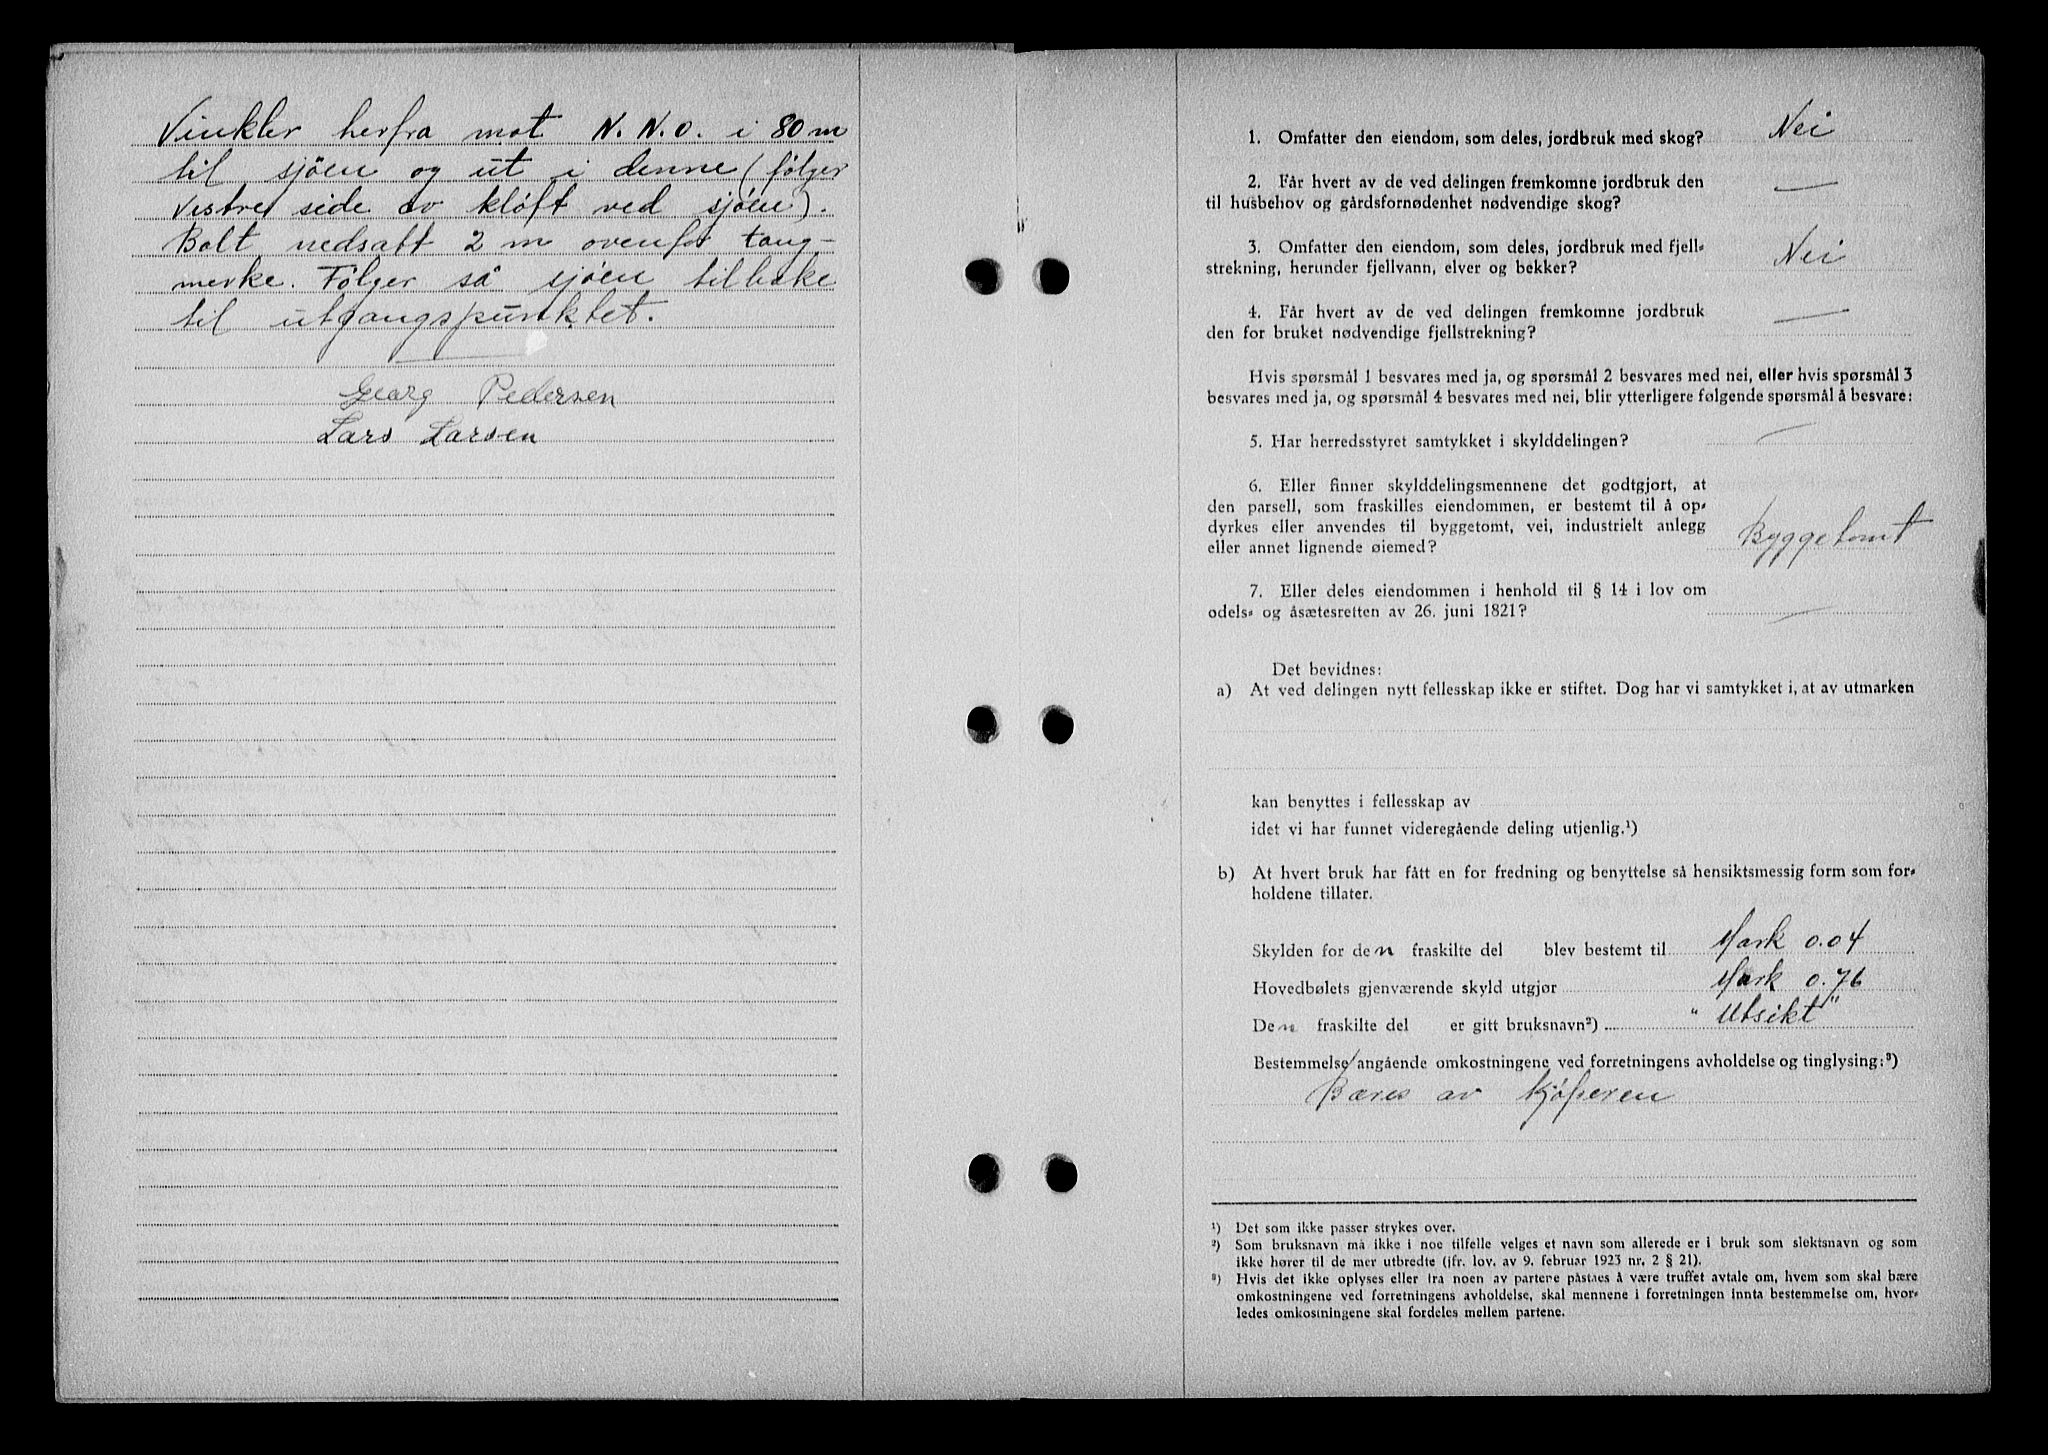 Vinkler herfra mot N.N.O. i 80 m
til sjöen og ut i denne (følger
vestre side av kløft ved sjöen).
Bolt nedsatt 2 m ovenfor tang-
merke. Følger så sjöen tilbake
til utgangspunktet.
Georg Pedersen
Lars Larsen
1. Omfatter den eiendom, som deles, jordbruk med skog? Nei
2. Får hvert av de ved delingen fremkomne jordbruk den
til husbehov og gårdsfornødenhet nødvendige skog? —
3. Omfatter den eiendom, som deles, jordbruk med fjell-
strekning, herunder fjellvann, elver og bekker? Nei
4. Får hvert av de ved delingen fremkomne jordbruk
den for bruket nødvendige fjellstrekning? —
Hvis spørsmål 1 besvares med ja, og spørsmål 2 besvares med nei, eller hvis spørsmål 3
besvares med ja, og spørsmål 4 besvares med nei, blir ytterligere følgende spørsmål å besvare:
5. Har herredsstyret samtykket i skylddelingen? —
6. Eller finner skylddelingsmennene det godtgjort, at
den parsell, som fraskilles eiendommen, er bestemt til å op-
dyrkes eller anvendes til byggetomt, vei, industrielt anlegg
eller annet lignende øiemed? Byggetomt
7. Eller deles eiendommen i henhold til § 14 i lov om
odels- og åsætesretten av 26. juni 1821? —
Det bevidnes:
a) At ved delingen nytt fellesskap ikke er stiftet. Dog har vi samtykket i, at av utmarken
kan benyttes i fellesskap av
idet vi har funnet videregående deling utjenlig.¹)
b) At hvert bruk har fått en for fredning og benyttelse så hensiktsmessig form som for-
holdene tillater.
Skylden for den fraskilte del blev bestemt til Mark 0.04
Hovedbølets gjenværende skyld utgjør Mark 0.76
Den fraskilte del er gitt bruksnavn²) "Utsikt"
Bestemmelse angående omkostningene ved forretningens avholdelse og tinglysing:³)
Bæres av kjøperen
¹) Det som ikke passer strykes over.
²) Som bruksnavn må ikke i noe tilfelle velges et navn som allerede er i bruk som slektsnavn og som
ikke hører til de mer utbredte (jfr. lov. av 9. februar 1923 nr. 2 § 21).
³) Hvis det ikke oplyses eller fra noen av partene påstaes å være truffet avtale om, hvem som skal bære
omkostningene ved forretningens avholdelse, skal mennene i forretningen innta bestemmelse om, hvor-
ledes omkostningene skal fordeles mellem partene.